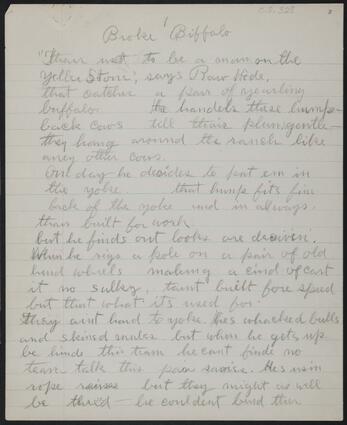 C.S. 325
1
Broke Biffalo
"Thair ust to be a man on the
Yellow Stone", says Raw Hide,
that catches a pair of yearling
buffalo. He handels these hump-
back cows till thair plum gentle-
they hang around the ranch like
aney other cows.
One day he decides to put em in
the yoke. that hump fits fine
back of the yoke and in always.
than built for work
but he finds out looks are deceiven.
When he rigs a pole on a pair of old
hind wheels making a cind of cart
it no sulky, taint built fore speed
but that what it's used for.
They aint hard to yoke. Hes whacked bulls
and skined mules but when he gets up
be hinde this team he cant finde no
team talk this pair savise. Hes usin
rope raines but they might as well
be thred - he couldent bend thir